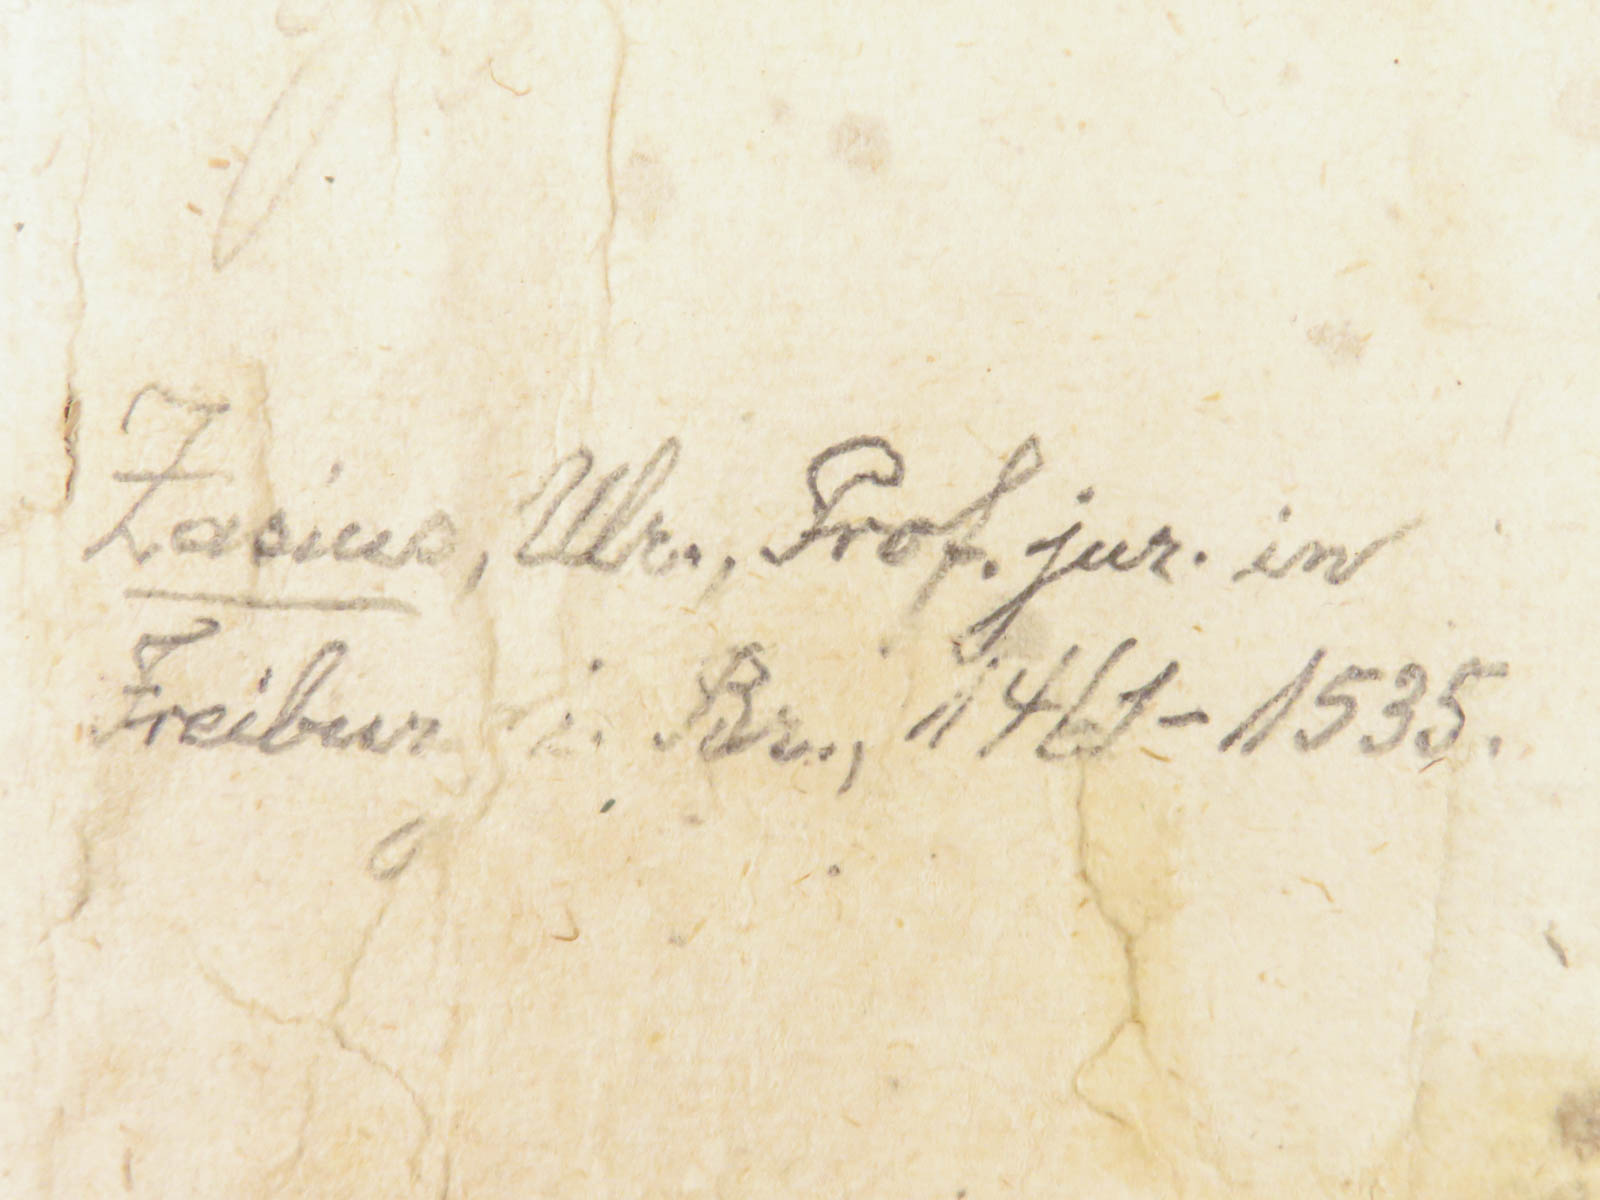 Zasius, Ulr., Prof. jur. in
Freiburg i. Br., 1461-1535.